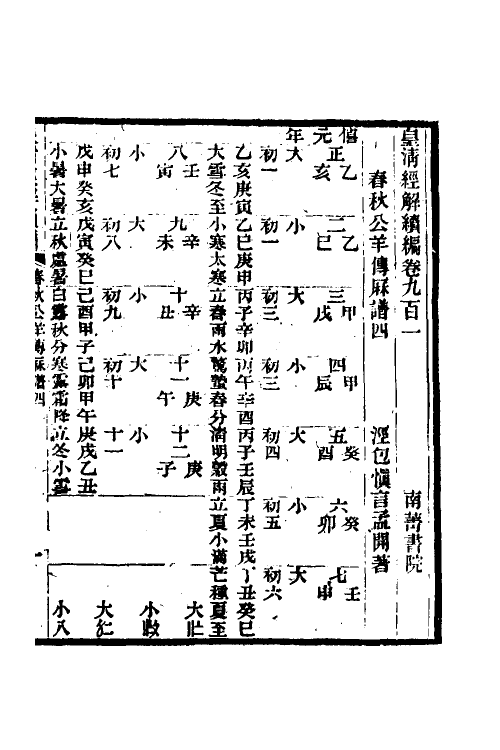 皇淸經解續編卷九百一　南菁書院
春秋公羊傳厤譜四　涇包愼言孟開著
僖元年
正乙亥　二乙巳　三甲戌　四甲辰　五癸酉　六癸卯　七壬申
大　小　大　小　大　小　大
初一　初一　初三　初三　初四　初五　初六
乙亥庚寅乙巳庚申丙子辛卯丙午辛酉丙子壬辰丁未壬戌丁丑癸巳
大雪冬至小寒大寒立春雨水驚蟄春分淸明穀雨立夏小滿芒種夏至
八壬寅　九辛未　十辛丑　十一庚午　十二庚子
小　大　小　大　小　大
初七　初八　初九　初十　十一
戊申癸亥戊寅癸巳己酉甲子己卯甲午庚戌乙丑
小暑大暑立秋處暑白露秋分寒露霜降立冬小雪
春秋公羊傳厤譜四